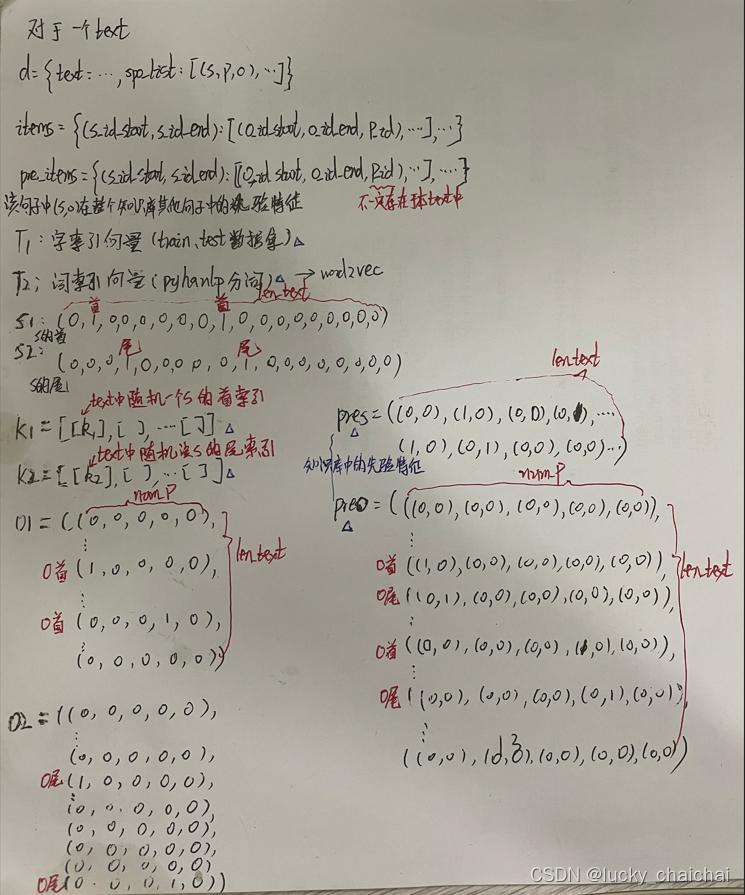 对于一个text
d={text:…, spo_list:[(s,p,o),…]}
items={(s_id_start,s_id_end):[(o_id_start,o_id_end,p_id),…],…}
pre_items={(s_id_start,s_id_end):[(o_id_start,o_id_end,p_id),…],…}
该句子中(s,o)在整个知识库其他句子中的先验特征
不一定存在本text中
T1:字索引向量(train、test数据集)△
T2:词索引向量(pyhanlp分词)△→word2vec
首 首 len_text
S1:(0,1,0,0,0,0,0,0,1,0,0,0,0,0,0,0,0)
S的首
尾 尾
S2:(0,0,0,1,0,0,0,0,0,1,0,0,0,0,0,0,0)
S的尾
text中随机一个S的首索引
K1=[[k1],[ ],…[ ]]△
text中随机该S的尾索引
K2=[[k2],[ ],…[ ]]△
num_P
O1=((0,0,0,0,0),
⋮
O首(1,0,0,0,0),
⋮
O首(0,0,0,1,0),
⋮
(0,0,0,0,0))
len_text
O2=((0,0,0,0,0),
⋮
(0,0,0,0,0),
O尾(1,0,0,0,0),
(0,0,0,0,0),
(0,0,0,0,0),
(0,0,0,0,0),
(0,0,0,0,0),
O尾(0,0,0,1,0))
len_text
pres=((0,0),(1,0),(0,0),(0,0),…
△
(1,0),(0,1),(0,0),(0,0)…)
知识库中的先验特征
num_P
preo=(((0,0),(0,0),(0,0),(0,0),(0,0)),
△
⋮
O首((1,0),(0,0),(0,0),(0,0),(0,0)),
O尾((0,1),(0,0),(0,0),(0,0),(0,0)),
⋮
O首((0,0),(0,0),(0,0),(1,0),(0,0)),
⋮
O尾((0,0),(0,0),(0,0),(0,1),(0,0)),
⋮
((0,0),(0,0),(0,0),(0,0),(0,0))
len_text
CSDN @lucky_chaichai